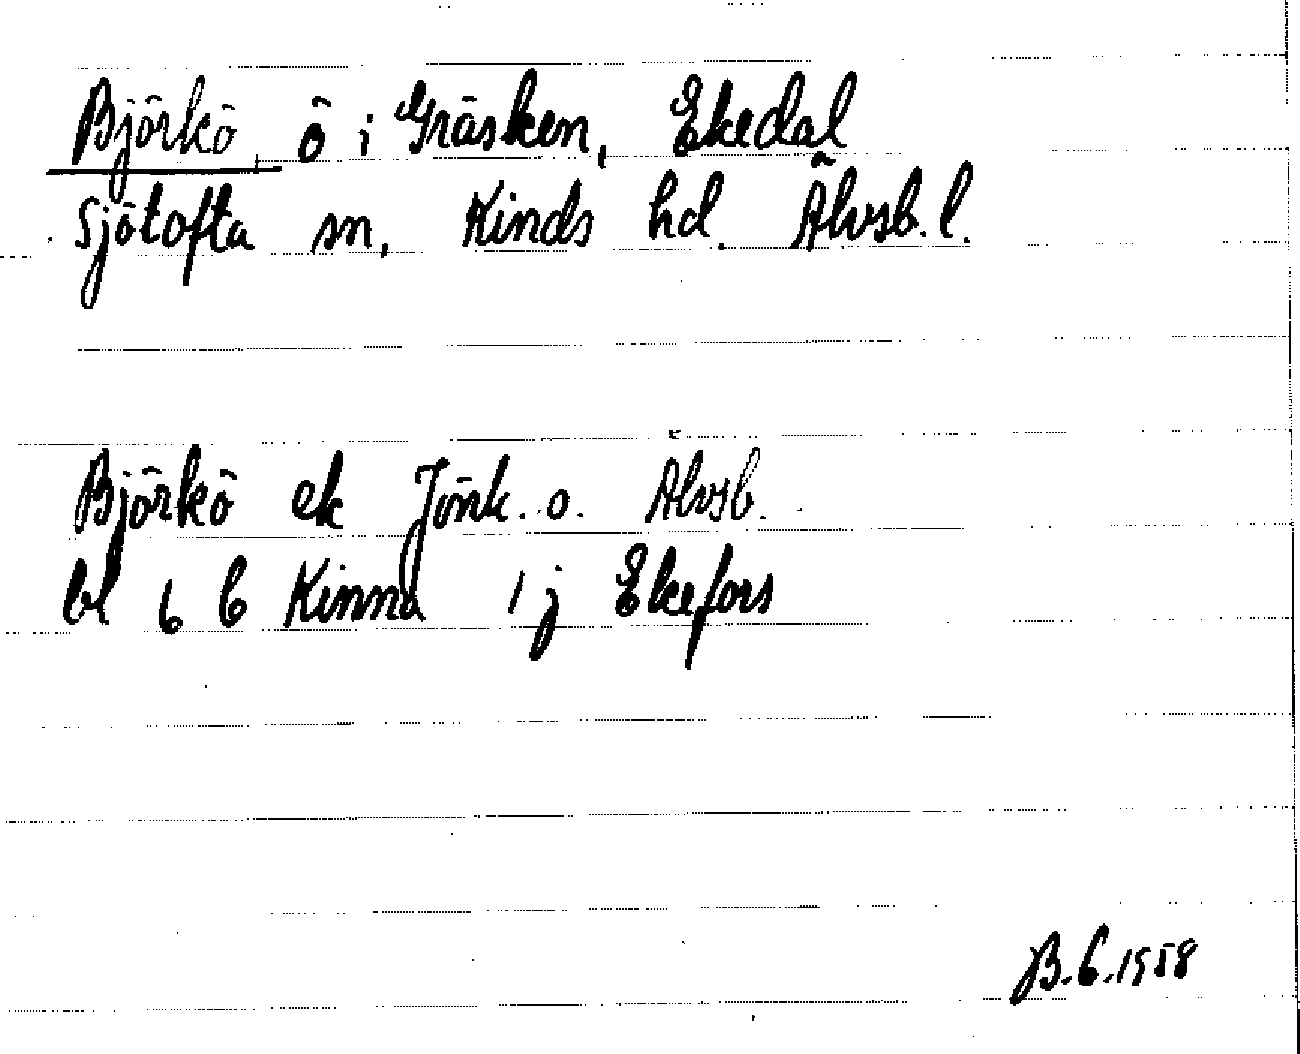 Björkö, ö i Gräsken, Ekedal
Sjötofta sn, Kinds hd. Älvsb. l.
Björkö ek Jönk. o. Älvsb.
bl 6 6 Kinna 1 j Ekefors
B.E. 1958